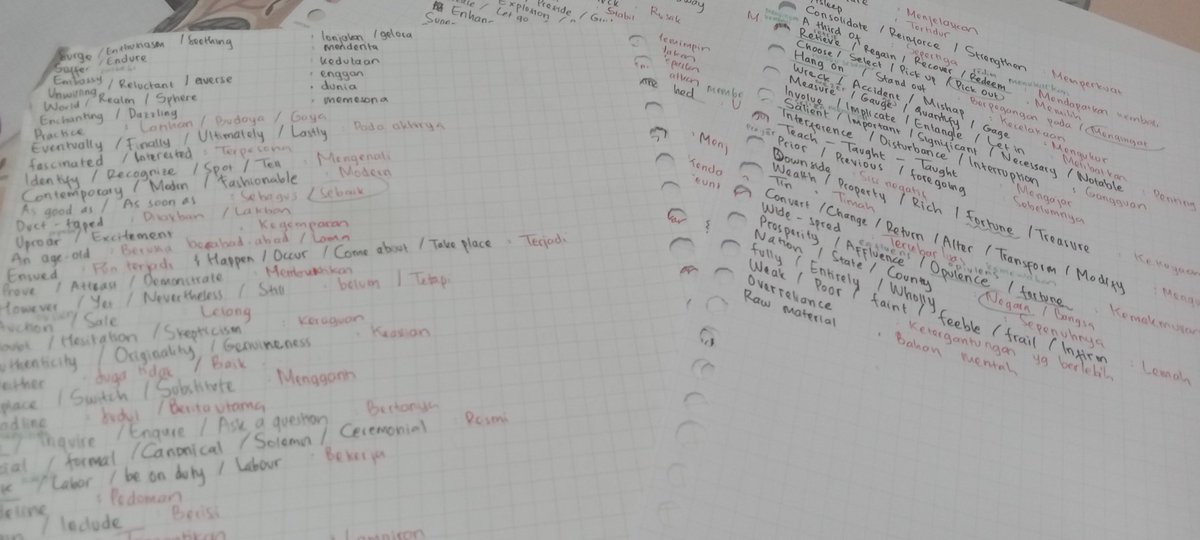 Surge / Enthusiasm / Soothing : lonjakan / gelora
Suffer / Endure : menderita
Embassy : kedutaan
Unwilling / Reluctant / averse : enggan
World / Realm / Sphere : dunia
Enchanting / Dazzling : memesona
Practice : Latihan / Budaya / Gaya
Eventually / Finally / Ultimately / Lastly : Pada akhirnya
fascinated / Interested : Terpesona
Identify / Recognize / Spot / Tell : Mengenali
Contemporary / Modern / Fashionable : Modern
As good as / As soon as : Sebagus / Sebaik
Duct - taped : Dilakban / Lakban
Uproar / Excitement : Kegemparan
An age-old : Berusia berabad-abad / Lama
Ensued : Pun terjadi / Happen / Occur / Come about / Take place : Terjadi
Prove / Attest / Demonstrate : Membuktikan
However / Yet / Nevertheless / Still : belum / Tetapi
Auction / Sale : Lelong
/ Hesitation / Skepticism : Keraguan
Authenticity / Originality / Genuineness : Keaslian
: Juga tidak / Baik
place / Switch / Substitute : Mengganti
adline : Judul / Berita utama
/ Inquire / Enquire / Ask a question : Bertanya
cial / formal / Canonical / Solemn / Ceremonial : Resmi
k / Labor / be on duty / Labour : Bekerja
deline : Pedoman
/ Include : Berisi
: Lampiran
/ Let go
Explosion
Provide / Give
: Stabil
Rusak
Enhan-
way
hed
: Menjelaskan
Asleep : Tertidur
Consolidate / Reinforce / Strengthen : Memperkuat
A third of : Sepertiga
Retieve / Regain / Recover / Redeem : Mendapatkan kembali
Choose / Select / Pick up / Pick out : Memilih
Hang on / Stand out : Berpegangan pada / Mengingat
Wreck / Accident / Mishap : Kecelakaan
Measure / Gauge / quantify / Gage : Mengukur
Involve / Implicate / Entangle / Let in : Melibatkan
Salient / Important / Significant / Necessary / Notable : Penting
Interference / Disturbance / Interruption : Gangguan
Teach - Taught - Taught : Mengajar
Prior / Previous / foregoing : Sebelumnya
Downside : Sisi negatif
Wealth / Property / Rich / Fortune / Treasure : Kekayaan
Tin : Timah
Convert / Change / Return / Alter / Transform / Modify : Meng
Wide - spred : Tersebar luas
Prosperity / Affluence / Opulence / fortune : Kemakmuran
Nation / State / County : Negara / Bangsa
fully / Entirely / Wholly : Sepenuhnya
Weak / Poor / faint / feeble / frail / Infirm : Lemah
Overreliance : Ketergantungan yg berlebih
Raw material : Bahan mentah